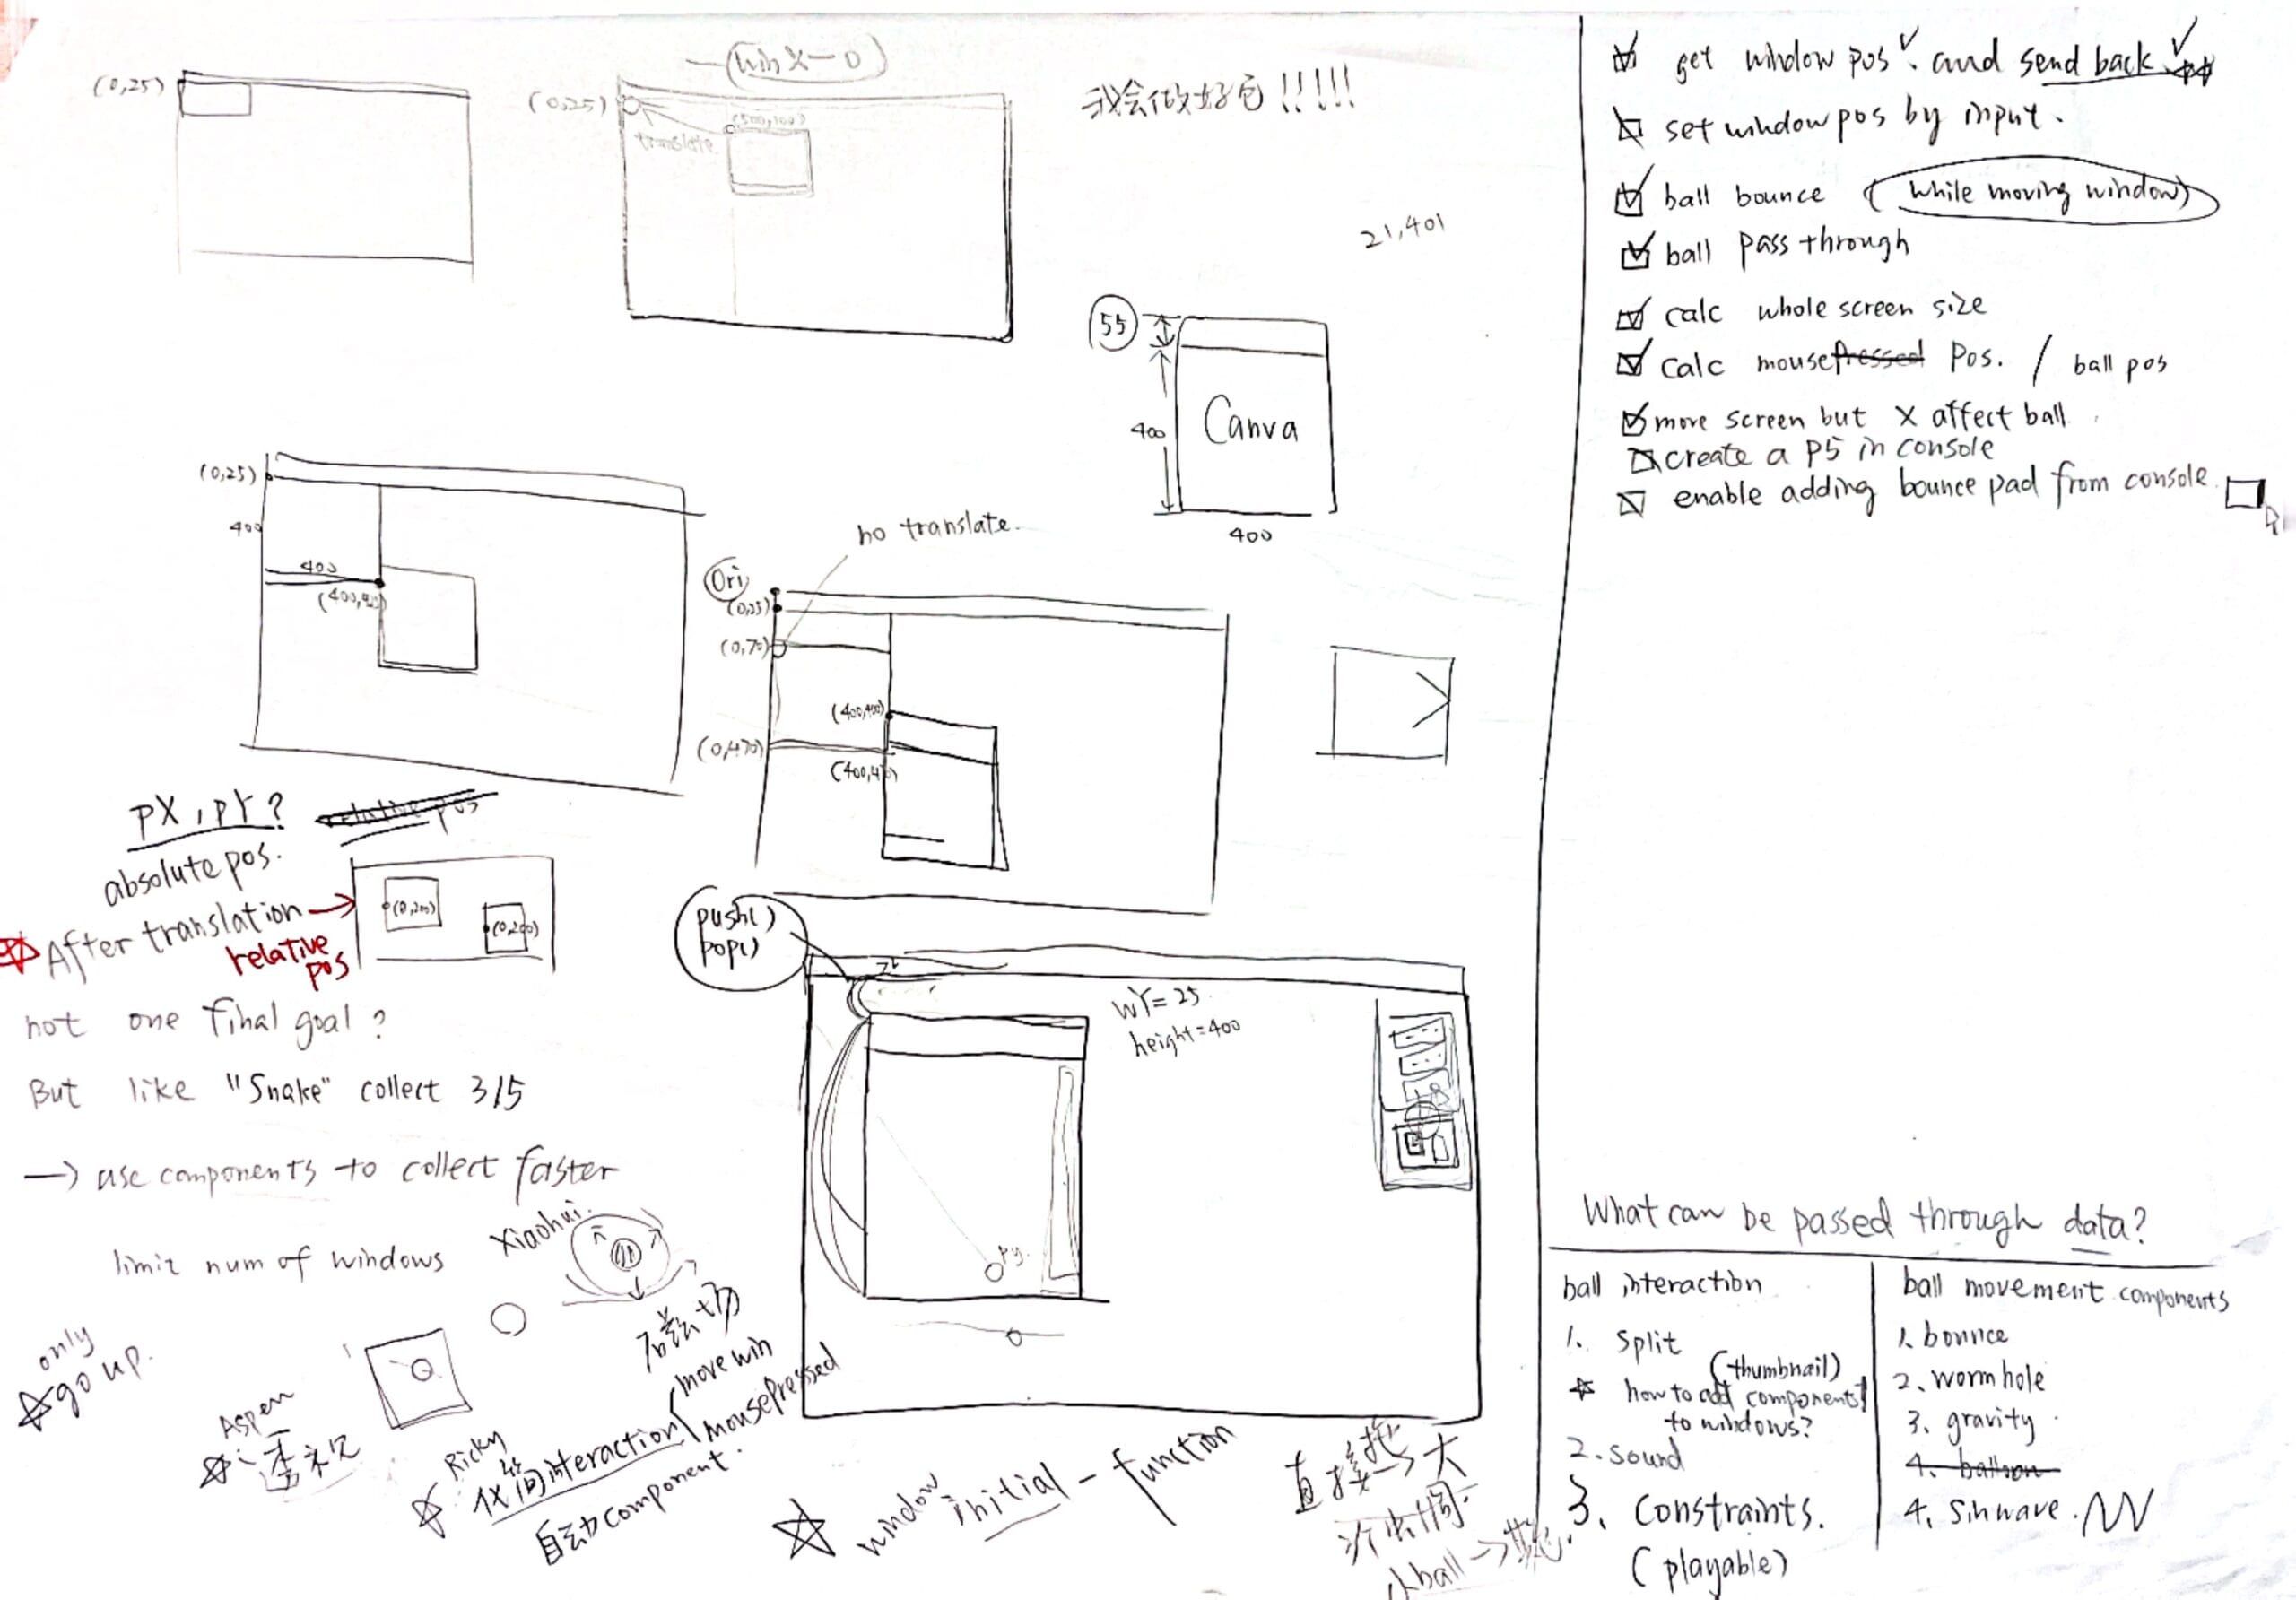 (0,25)
win X-0
(0,25)
(500,100)
translate
我会做好包!!!!!
21,401
55
400
Canva
400
(0,25)
400
400
no translate.
Ori
(0,25)
(0,70)
(400,400)
(0,470)
pX, pY?
absolute pos.
After translation
relative
pos
(0,200)
(0,200)
push()
pop()
wY=25
height=400
py.
not one final goal?
But like "Snake" collect 3/5
→ use components to collect faster
limit num of windows
Xiaohui.
only
go up.
Aspen
Ricky
interaction
move win
mousePressed
自动component.
window initial - function
直接
大
小ball →
get window pos. and send back
set window pos by input.
ball bounce (while moving window)
ball pass through
calc whole screen size
calc mousepressed pos. / ball pos
more screen but X affect ball.
create a P5 in console
enable adding bounce pad from console.
What can be passed through data?
ball interaction
1. split
(thumbnail)
how to add components
to windows?
2. sound
3. Constraints.
(playable)
ball movement components
1. bounce
2. wormhole
3. gravity
4. balloon
4. sinwave.